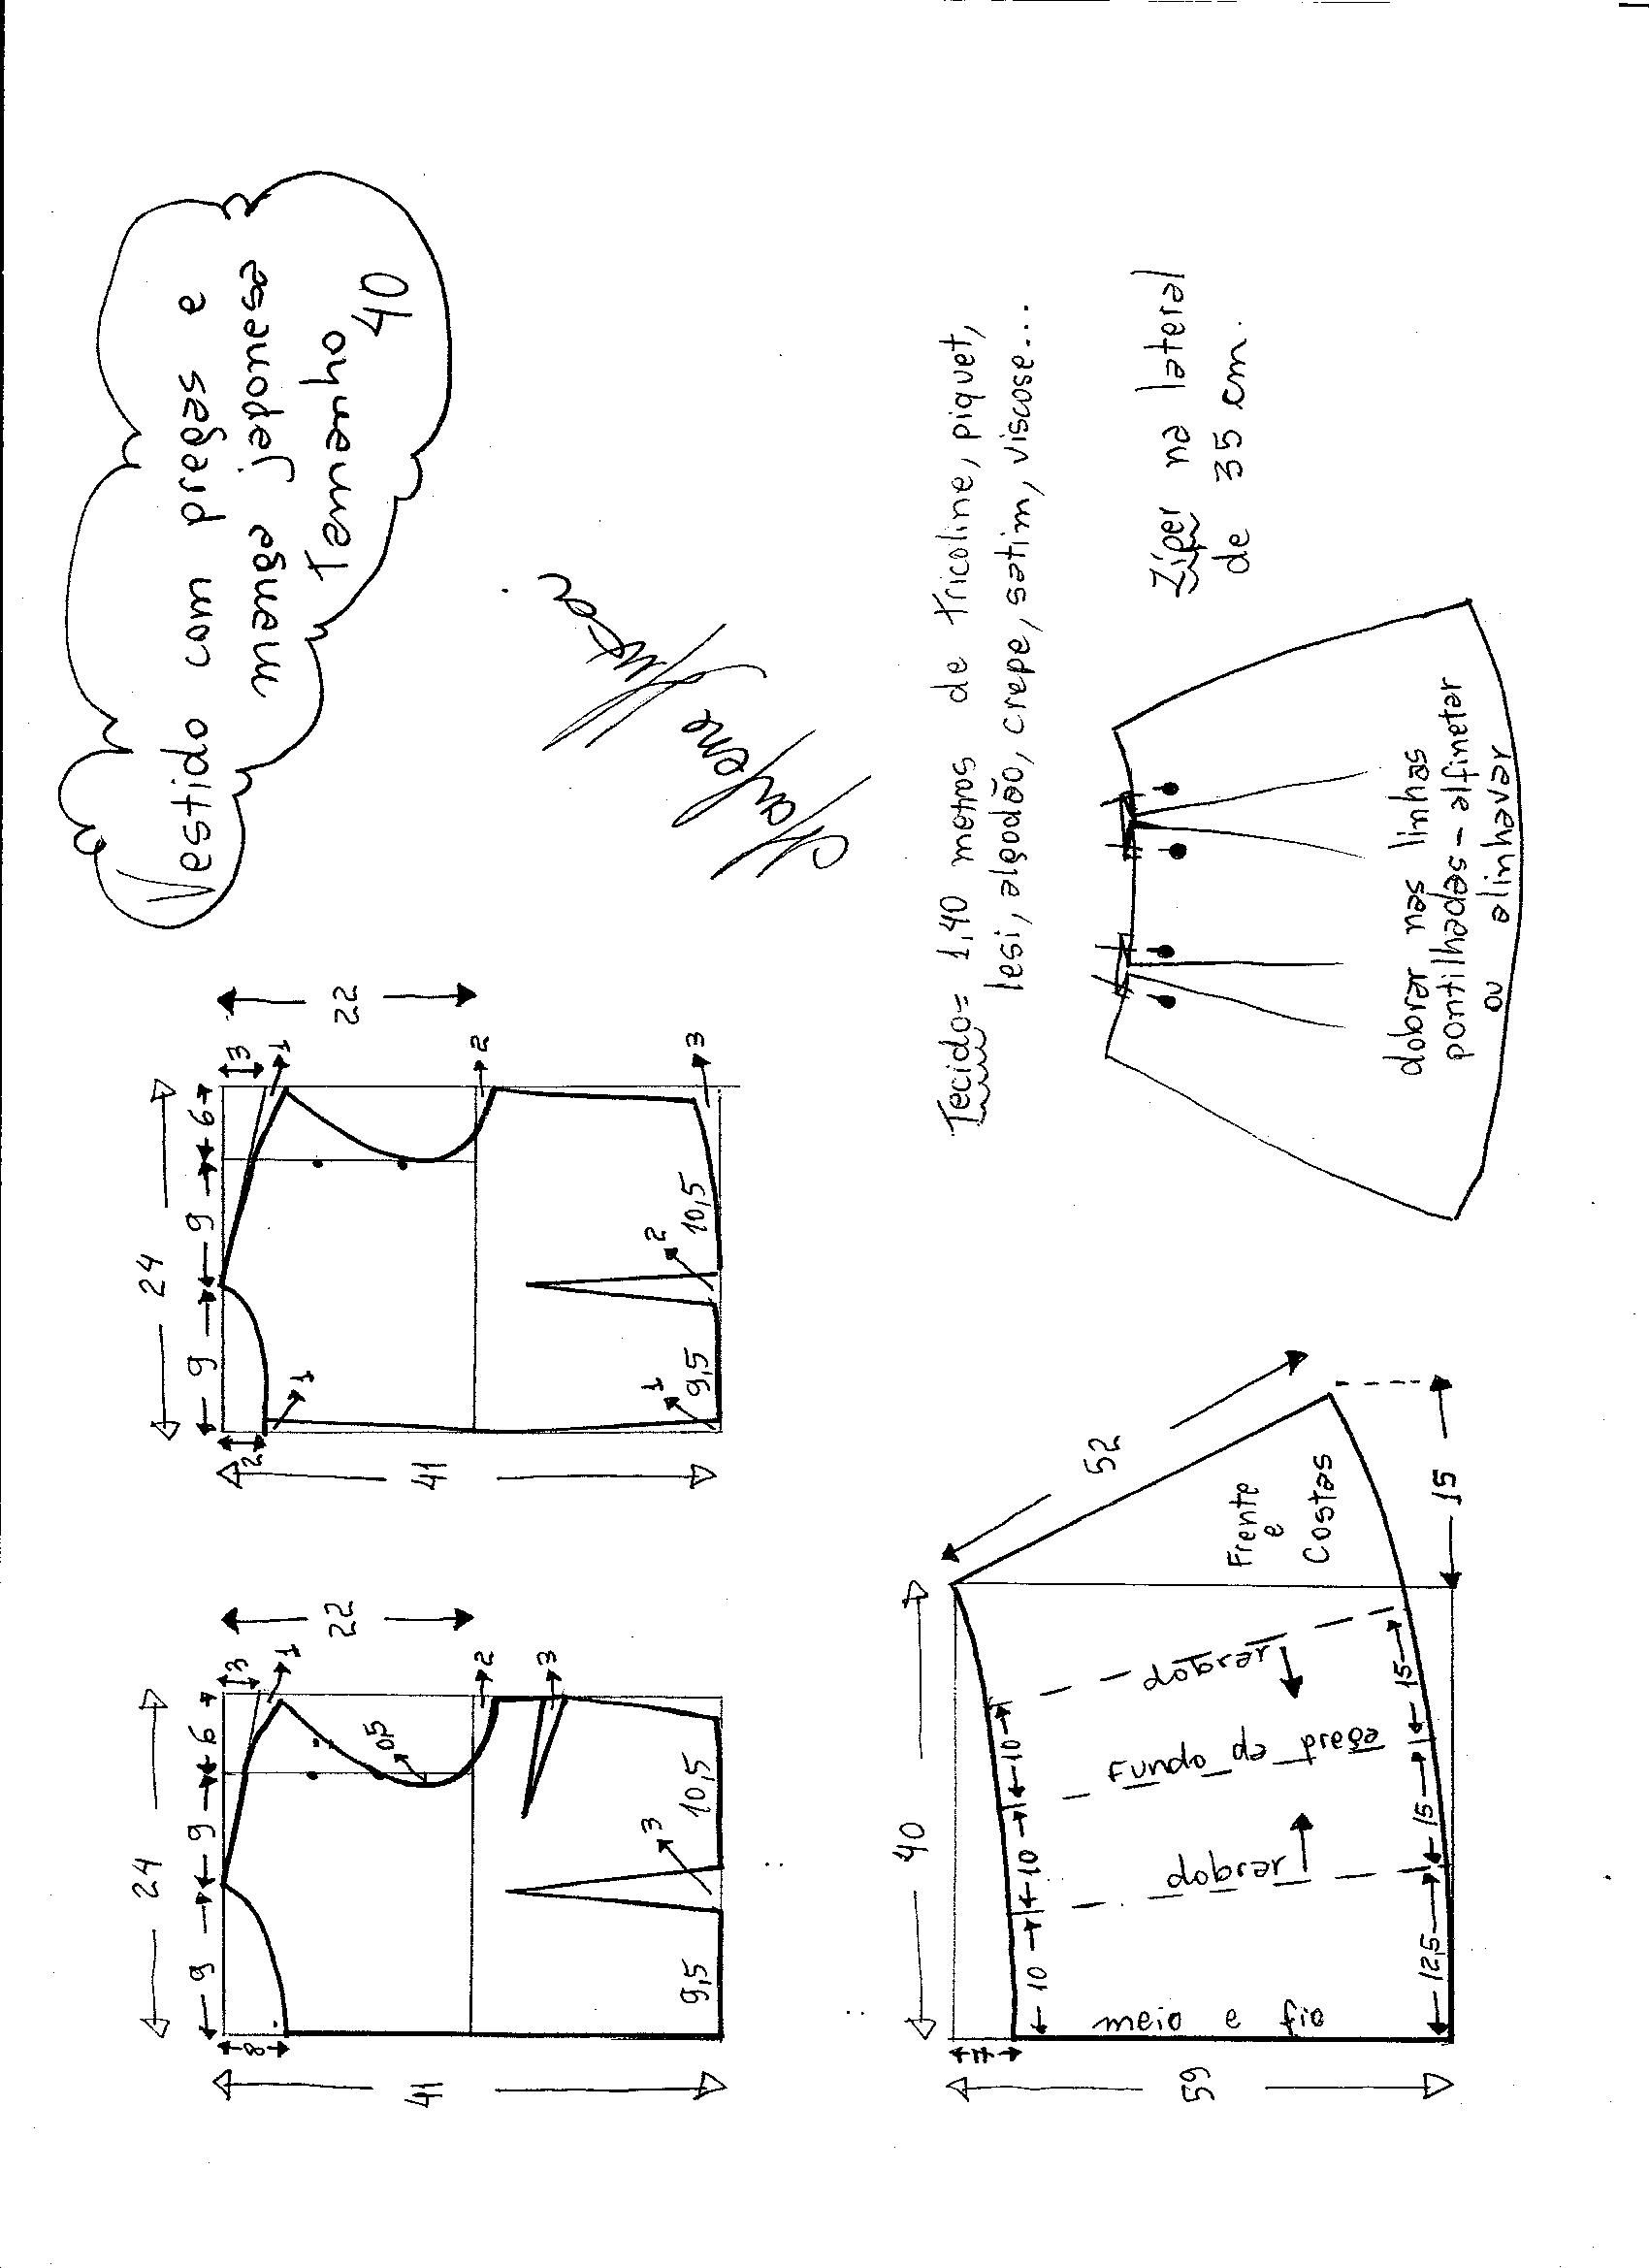 Vestido com pregas e
manga japonesa
Tamanho
40
24
9
9
6
3
1
22
8
41
0,5
2
3
3
9,5
10,5
24
9
9
6
3
1
22
2
1
41
2
3
1
2
9,5
10,5
Marlene
Tecido= 1,40 metros de tricoline, piquet,
lesi, algodão, crepe, satim, viscose...
Zíper na lateral
de 35 cm.
40
7
59
52
15
10
10
10
dobrar
Fundo da prega
dobrar
Frente
e
Costas
meio e fio
12,5
15
15
dobrar nas linhas
pontilhadas - alfinetar
ou alinhavar